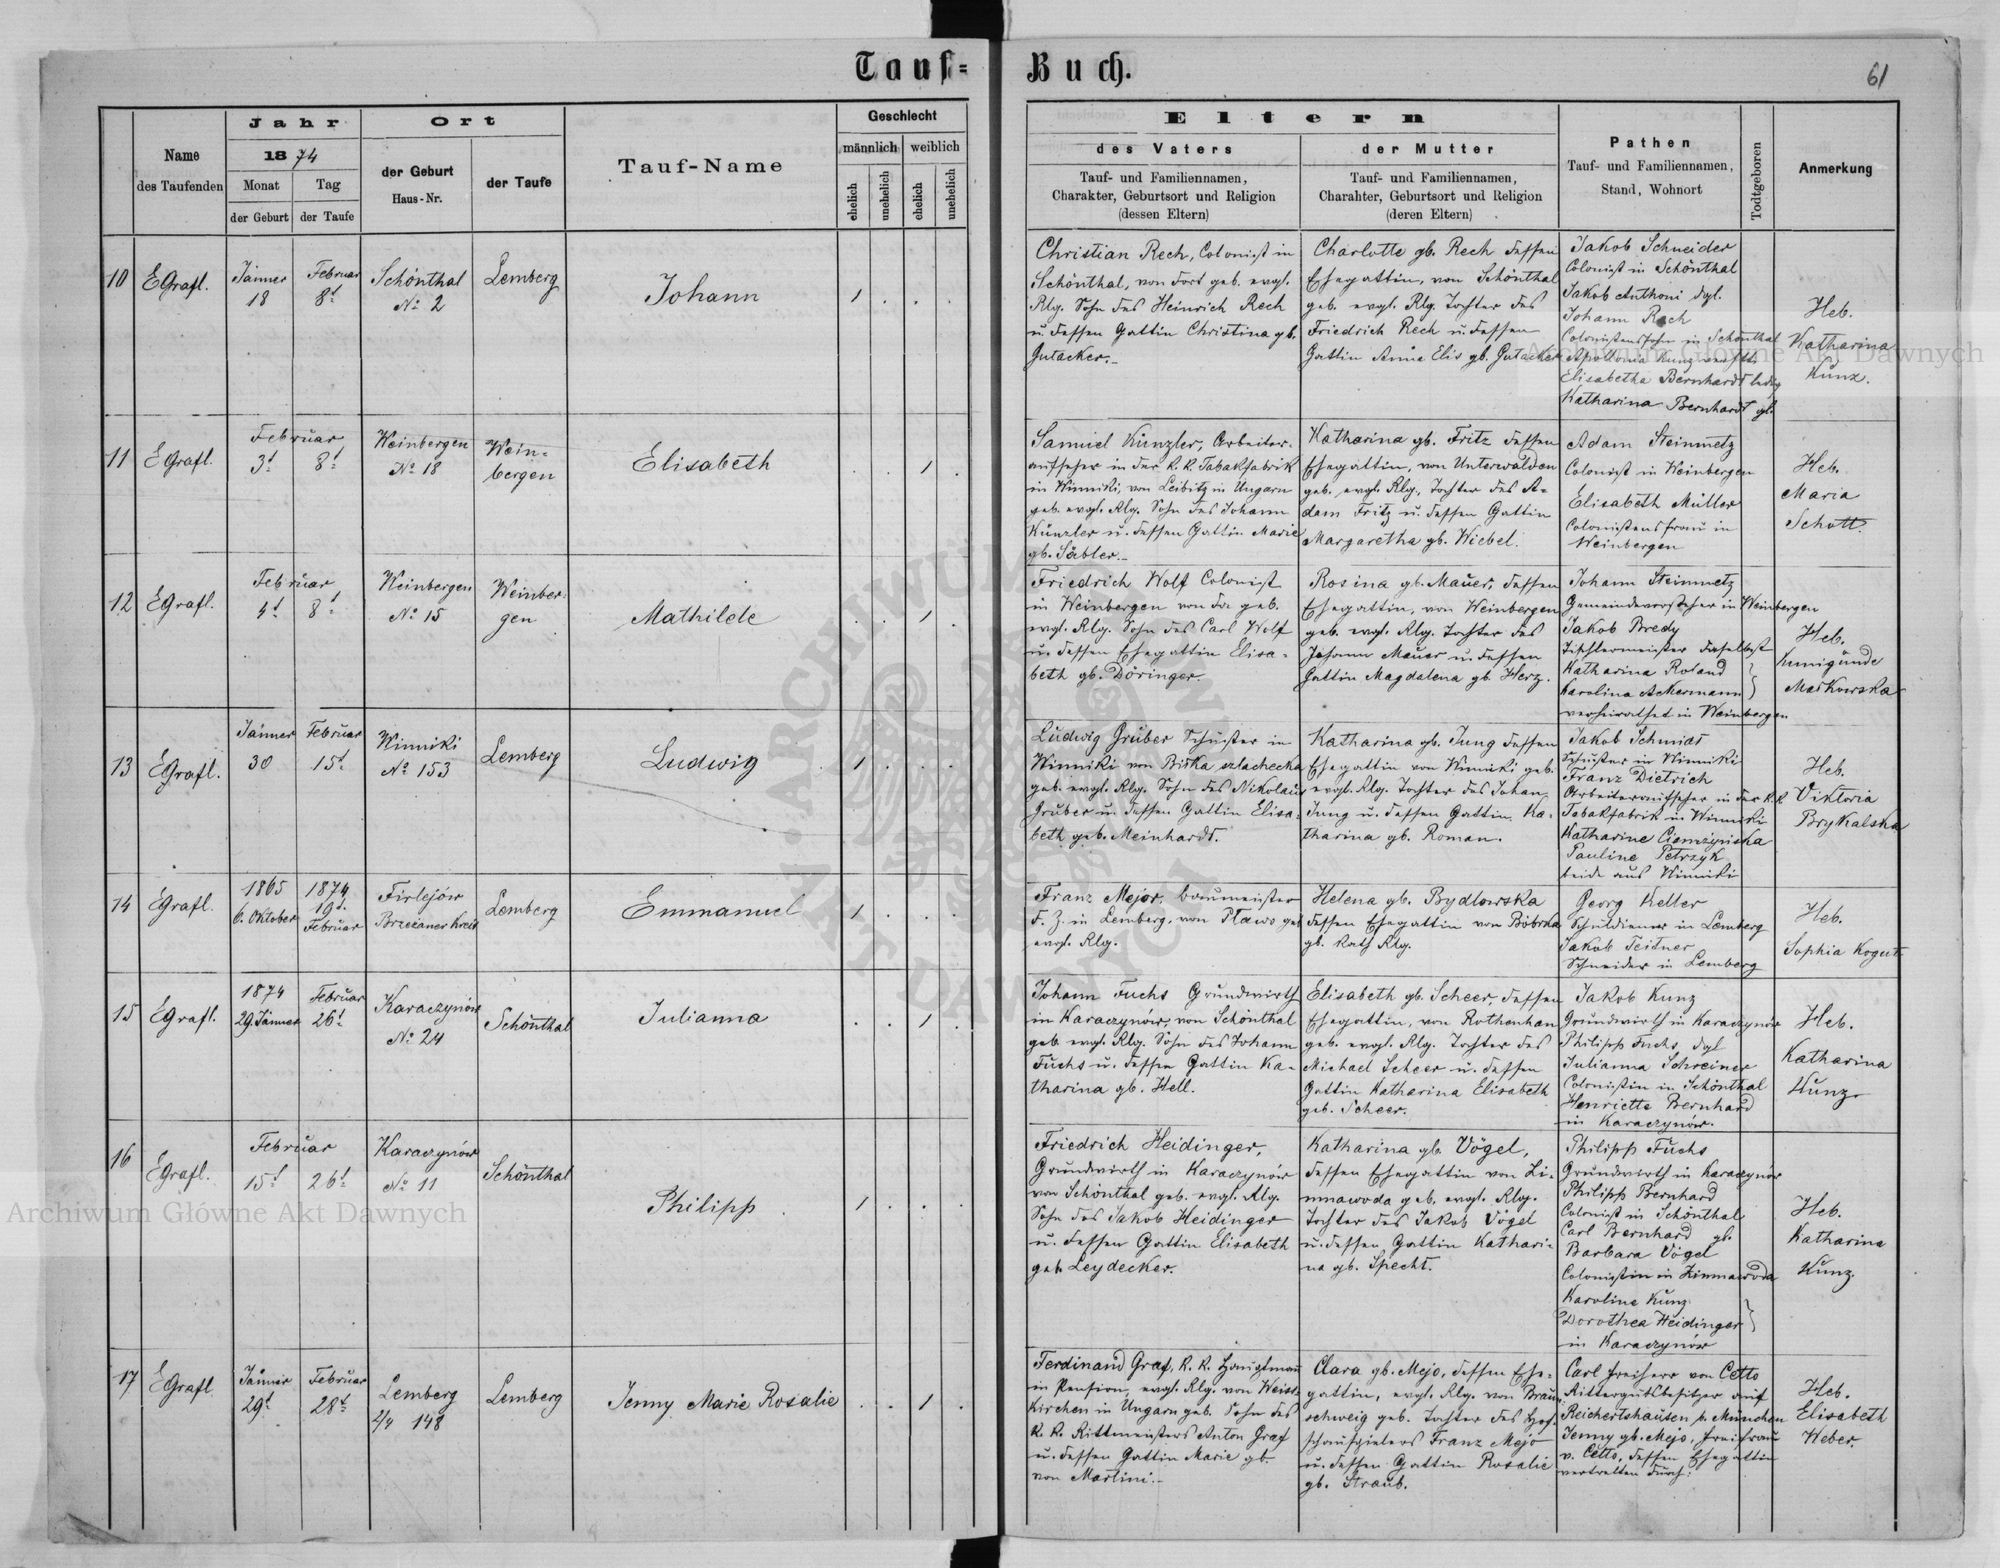 Tauf=
Buch.
61
Name
des Taufenden
Jahr
1874
Monat
der Geburt
Tag
der Taufe
Ort
der Geburt
Haus-Nr.
der Taufe
Tauf-Name
Geschlecht
männlich
weiblich
ehelich
unehelich
ehelich
unehelich
Eltern
des Vaters
Tauf- und Familiennamen,
Charakter, Geburtsort und Religion
(dessen Eltern)
der Mutter
Tauf- und Familiennamen,
Charahter, Geburtsort und Religion
(deren Eltern)
Pathen
Tauf- und Familiennamen,
Stand, Wohnort
Todtgeboren
Anmerkung
10
EGrafl.
Jänner
18
Februar
8t
Schönthal
No 2
Lemberg
Johann
Christian Rech, Colonist in
Schönthal, von dort geb. evgl.
Rlg. Sohn des Heinrich Rech
u. dessen Gattin Christina gb.
Gutacker.
Charlotte gb. Rech dessen
Ehegattin, von Schönthal
geb. evgl. Rlg. Tochter des
Friedrich Rech u. dessen
Gattin Anna Elis gb. Gutacker
Jakob Schneider
Colonist in Schönthal
Jakob Anthoni dgl.
Johann Rech
Colonistenssohn in Schönthal
Apollonia Kunz
Elisabetha Bernhardt ledig
Katharina Bernhardt
Heb.
Katharina
Kunz.
11
EGrafl.
Februar
3t
8t
Weinbergen
No 18
Wein=
bergen
Elisabeth
Samuel Künzler, Arbeiter-
aufseher in der k. k. Tabakfabrik
in Winniki, von Leibitz in Ungarn
geb. evgl. Rlg. Sohn des Johann
Künzler u. dessen Gattin Marie
gb. Säbler.
Katharina gb. Fritz dessen
Ehegattin, von Unterwalden
geb. evgl. Rlg., Tochter des A-
dam Fritz u. dessen Gattin
Margaretha gb. Wiebel.
Adam Steinmetz
Colonist in Weinbergen
Elisabeth Müller
Colonistensfrau in
Weinbergen
Heb.
Maria
Schott.
12
EGrafl.
Februar
4t
8t
Weinbergen
No 15
Weinber-
gen
Mathilde
Friedrich Wolf Colonist
in Weinbergen von da geb.
evgl. Rlg. Sohn des Carl Wolf
u. dessen Ehegattin Elisa-
beth gb. Döringer.
Rosina gb. Mauer, dessen
Ehegattin, von Weinbergen
geb. evgl. Rlg. Tochter des
Johann Mauer u. dessen
Gattin Magdalena gb. Herz.
Johann Steinmetz
Gemeindevorsteher in Weinbergen
Jakob Bredy
Tischlermeister daselbst
Katharina Roland
Karolina Ackermann
verheirathet in Weinbergen
Heb.
Kunigunde
Maskowska
13
EGrafl.
Jänner
30
Februar
15t
Winniki
No 153
Lemberg
Ludwig
Ludwig Gruber Schuster in
Winniki von Biłka szlachecka
geb. evgl. Rlg. Sohn des Nikolaus
Gruber u. dessen Gattin Elisa-
beth geb. Meinhardt.
Katharina gb. Jung dessen
Ehegattin von Winniki geb.
evgl. Rlg. Tochter des Johan
Jung u. dessen Gattin Ka-
tharina gb. Roman.
Jakob Schmidt
Schuster in Winniki
Franz Dietrich
Arbeiteraufseher in der k. k.
Tabakfabrik in Winniki
Katharine
Pauline Petrzyk
beide aus Winniki
Heb.
Viktoria
Brykalska
14
EGrafl.
1865
6. Oktober
1874
19t.
Februar
Firlejów
Brzežaner Kreis
Lemberg
Emmanuel
Franz Mejor, baumeister
d. Z. in Lemberg, von Pławo geb
evgl. Rlg.
Helena gb. Bydlowska
dessen Ehegattin von Bóbrka
gb. kath Rlg.
Georg Keller
Schuldiener in Lemberg
Jakob Teitner
Schneider in Lemberg
Heb.
Sophia Kogut
15
EGrafl.
1874
29. Jänner
Februar
26t
Karaczynów
No 24
Schönthal
Julianna
Johann Fuchs Grundwirth
in Karaczynów, von Schönthal
geb. evgl. Rlg. Sohn des Johann
Fuchs u. dessen Gattin Ka-
tharina gb. Hell.
Elisabeth gb. Scheer, dessen
Ehegattin, von Rothenhan
geb. evgl. Rlg. Tochter des
Michael Scheer u. dessen
Gattin Katharina Elisabeth
geb. Scheer.
Jakob Kunz
Grundwirth in Karaczynów
Philipp Fuchs, dgl
Julianna Schreiner
Colonistin in Schönthal
Henriette Bernhard
in Karaczynów.
Heb.
Katharina
Kunz.
16
EGrafl.
Februar
15t
26t
Karaczynów
No 11
Schönthal
Philipp
Friedrich Heidinger,
Grundwirth in Karaczynów
von Schönthal geb. evgl. Rlg.
Sohn des Jakob Heidinger
u. dessen Gattin Elisabeth
geb. Leydecker.
Katharina gb. Vögel,
dessen Ehegattin von Zi-
mnawoda geb. evgl. Rlg.
Tochter des Jakob Vögel
u. dessen Gattin Kathari-
na gb. Specht.
Philipp Fuchs
Grundwirth in Karaczynów
Philipp Bernhard
Colonist in Schönthal
Carl Bernhard gl.
Barbara Vögel
Colonistin in Zimnawoda
Karoline Kunz
Dorothea Heidinger
in Karaczynów
Heb.
Katharina
Kunz.
17
EGrafl.
Jänner
29t
Februar
28t
Lemberg
2/4 148
Lemberg
Jenny Marie Rosalie
Ferdinand Graf, k. k. Hauptmann
in Pension, evgl. Rlg. von Weiss-
kirchen in Ungarn geb. Sohn des
k. k. Rittmeisters Anton Graf
u. dessen Gattin Marie gb.
von Martini.
Clara gb. Mejo, dessen Ehe-
gattin, evgl. Rlg. von Braun-
schweig geb. Tochter des Hof-
schauspielers Franz Mejo
u. dessen Gattin Rosalie
gb. Straub.
Carl Freiherr von Cetto
Rittergutsbesitzer auf
Reichertshausen b. München
Jenny gb. Mejo, Freifrau
v. Cetto, dessen Ehegattin
vertretten durch:
Heb.
Elisabeth
Weber.
Archiwum Główne Akt Dawnych
Archiwum Główne Akt Dawnych